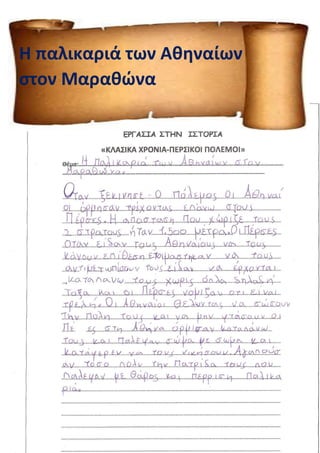 Η παλικαριά των Αθηναίων
στον Μαραθώνα
ΕΡΓΑΣΙΑ ΣΤΗΝ ΙΣΤΟΡΙΑ
«ΚΛΑΣΙΚΑ ΧΡΟΝΙΑ-ΠΕΡΣΙΚΟΙ ΠΟΛΕΜΟΙ»
Θέμα: Η παλικαριά των Αθηναίων στον
Μαραθώνα.
Όταν ξεκίνησε ο πόλεμος οι Αθηναί
οι όρμησαν τρέχοντας επάνω στους
Πέρσες. Η απόσταση που χώριζε τους
2 στρατούς ήταν 1.500 μέτρα. Οι Πέρσες
όταν είδαν τους Αθηναίους να τους
κάνουν επίθεση ετοιμάστηκαν να τους
αντιμετωπίσουν τους είδαν να έρχονται
καταπάνω τους χωρίς όπλα δηλαδή
τόξα και οι Πέρσες νόμιζαν ότι είναι
τρελοί. Οι Αθηναίοι θέλωντας να σώσουν
την πόλη τους και να μην φτάσουν οι
Πέ ες στη Αθήνα όρμισαν καταπάνω
τους και πάλεψαν σώμα με σώμα και
κατάφεραν να τους νικήσουν. Αγαπούσ
αν τόσο πολύ την πατρίδα τους που
πάλεψαν με θάρος και περρίση παλικα
ριά.